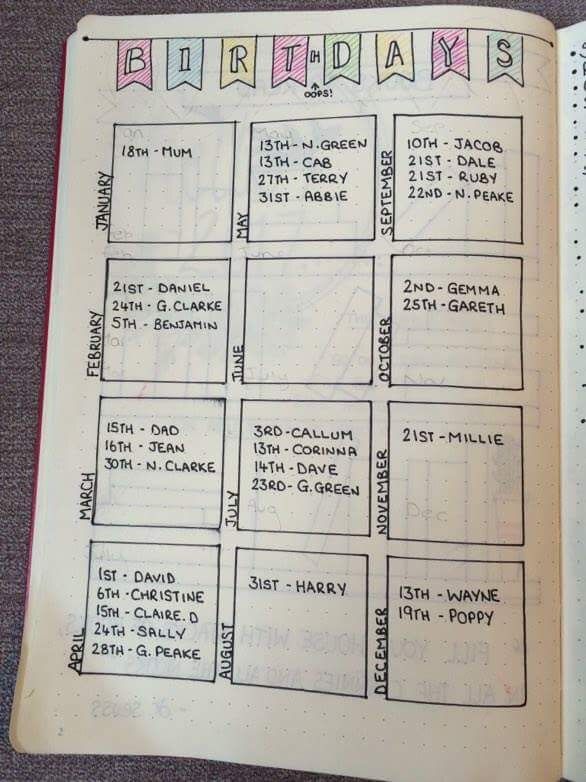 BIRTHDAYS
↑
OOPS!
JANUARY
18TH - MUM
FEBRUARY
21ST - DANIEL
24TH - G.CLARKE
5TH - BENJAMIN
MARCH
15TH - DAD
16TH - JEAN
30TH - N.CLARKE
APRIL
1ST - DAVID
6TH - CHRISTINE
15TH - CLAIRE.D
24TH - SALLY
28TH - G. PEAKE
MAY
13TH - N.GREEN
13TH - CAB
27TH - TERRY
31ST - ABBIE
JUNE
JULY
3RD - CALLUM
13TH - CORINNA
14TH - DAVE
23RD - G.GREEN
AUGUST
31ST - HARRY
SEPTEMBER
10TH - JACOB
21ST - DALE
21ST - RUBY
22ND - N.PEAKE
OCTOBER
2ND - GEMMA
25TH - GARETH
NOVEMBER
21ST - MILLIE
DECEMBER
13TH - WAYNE
19TH - POPPY
2